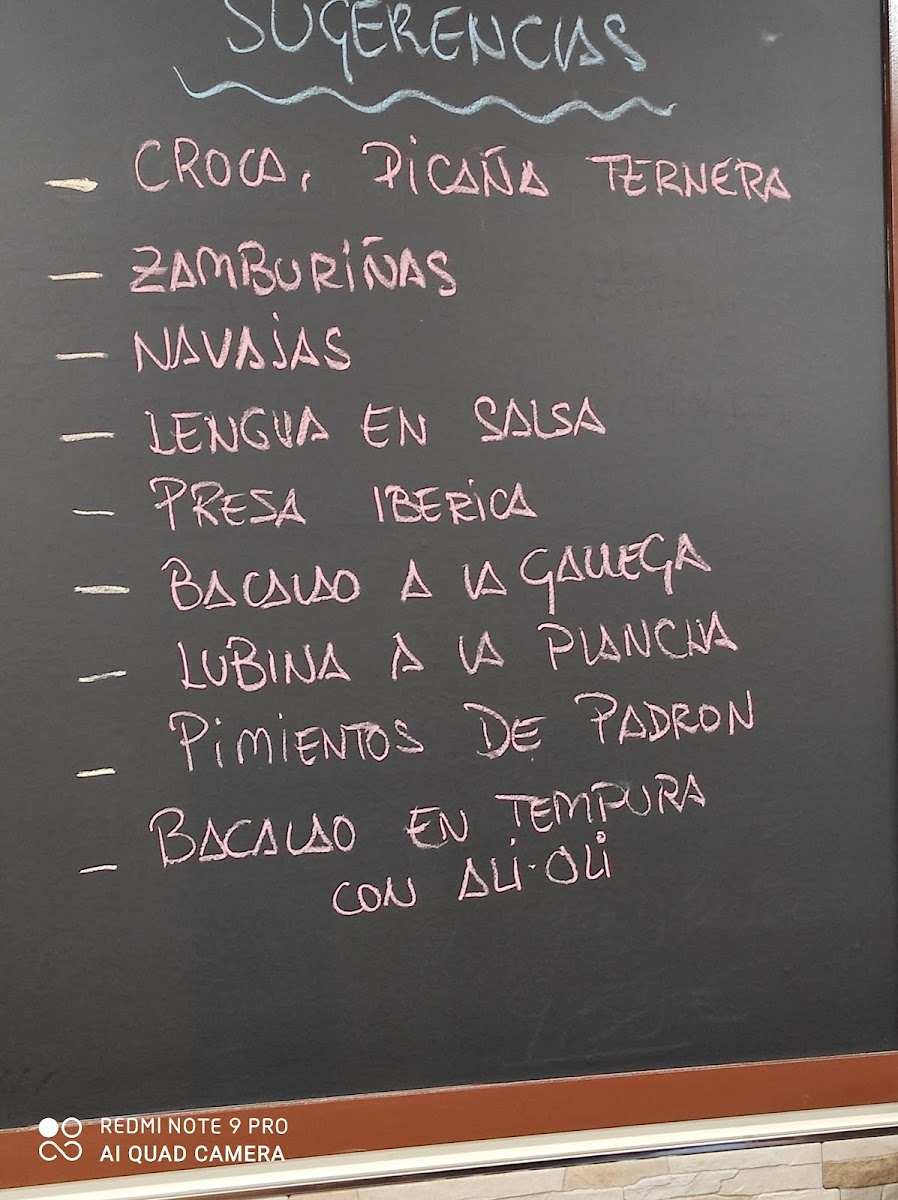 SUGERENCIAS
- CROCA, PICAÑA TERNERA
- ZAMBURIÑAS
- NAVAJAS
- LENGUA EN SALSA
- PRESA IBERICA
- BACALAO A LA GALLEGA
- LUBINA A LA PLANCHA
- PIMIENTOS DE PADRON
- BACALAO EN TEMPURA
CON ALI-OLI
REDMI NOTE 9 PRO
AI QUAD CAMERA